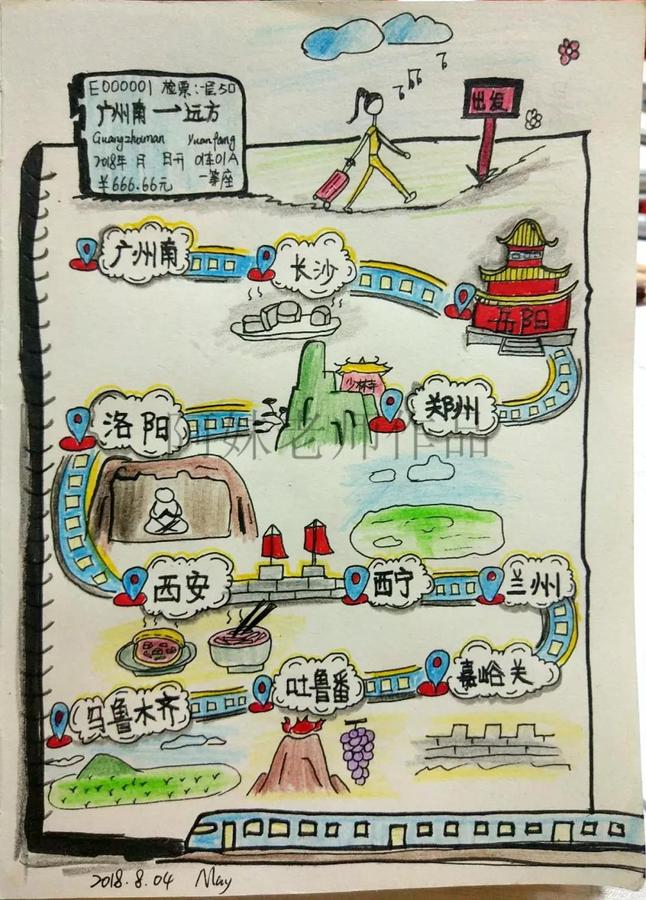 E000001 检票:一层5口
广州南→远方
Guangzhounan Yuanfang
2018年 月 日开 01车01A
¥666.66元 一等座
出发
广州南
长沙
岳阳
少林寺
洛阳
郑州
阿妹老师作品
西安
西宁
兰州
乌鲁木齐
吐鲁番
嘉峪关
2018.8.04 May